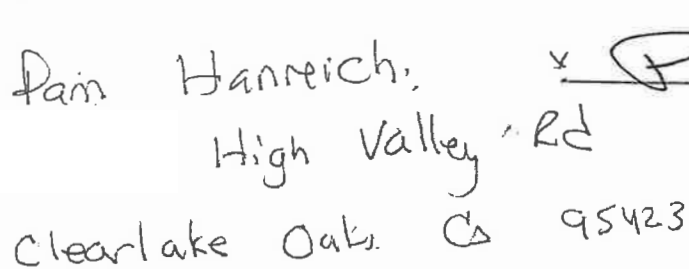 Pam Hanreich, x
High Valley Rd
Clearlake Oaks Ca 95423